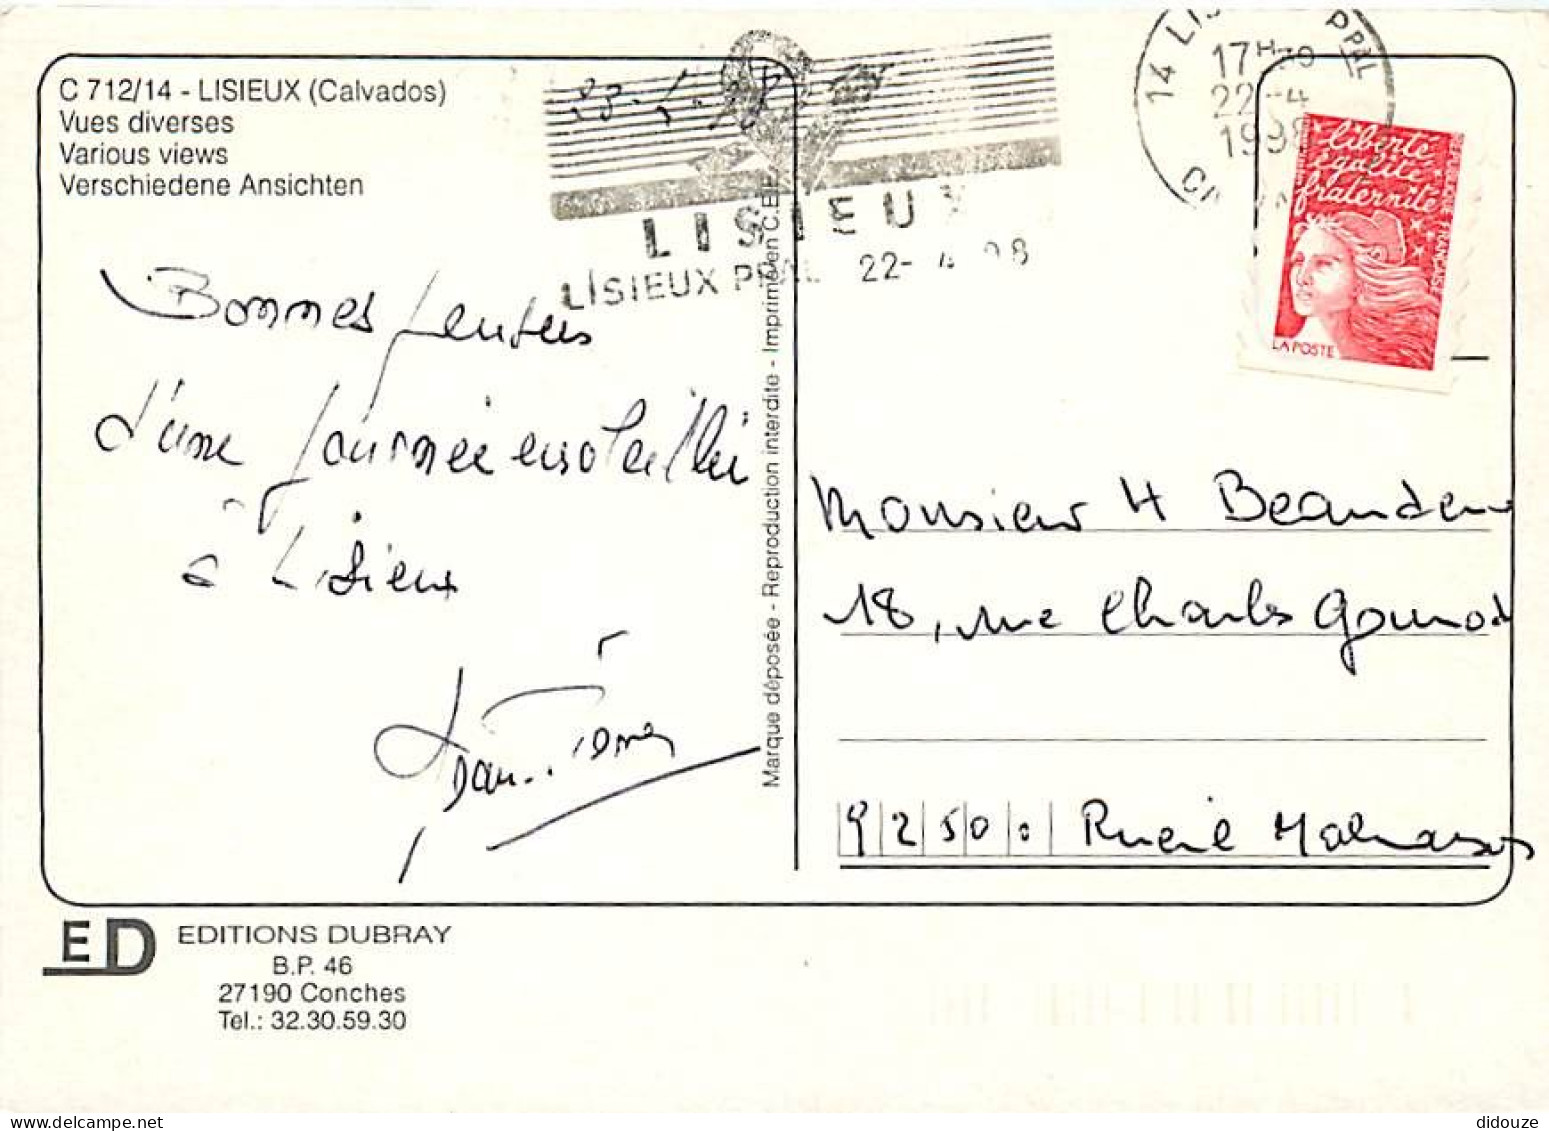 C 712/14 - LISIEUX (Calvados)
Vues diverses
Various views
Verschiedene Ansichten
LISIEUX
LISIEUX PPAL 22-4-98
14 LISIEUX PPAL
17H
22-4
1998
liberté
égalité
fraternité
RÉPUBLIQUE FRANÇAISE
LA POSTE
Bonnes pensées
d'une journée ensoleillée
à Lisieux
Marque déposée - Reproduction interdite - Imprimé en C.E.E.
Monsieur H
18, rue Charles Gounod
9250 Rueil Malmaison
ED
EDITIONS DUBRAY
B.P. 46
27190 Conches
Tel.: 32.30.59.30
didouze